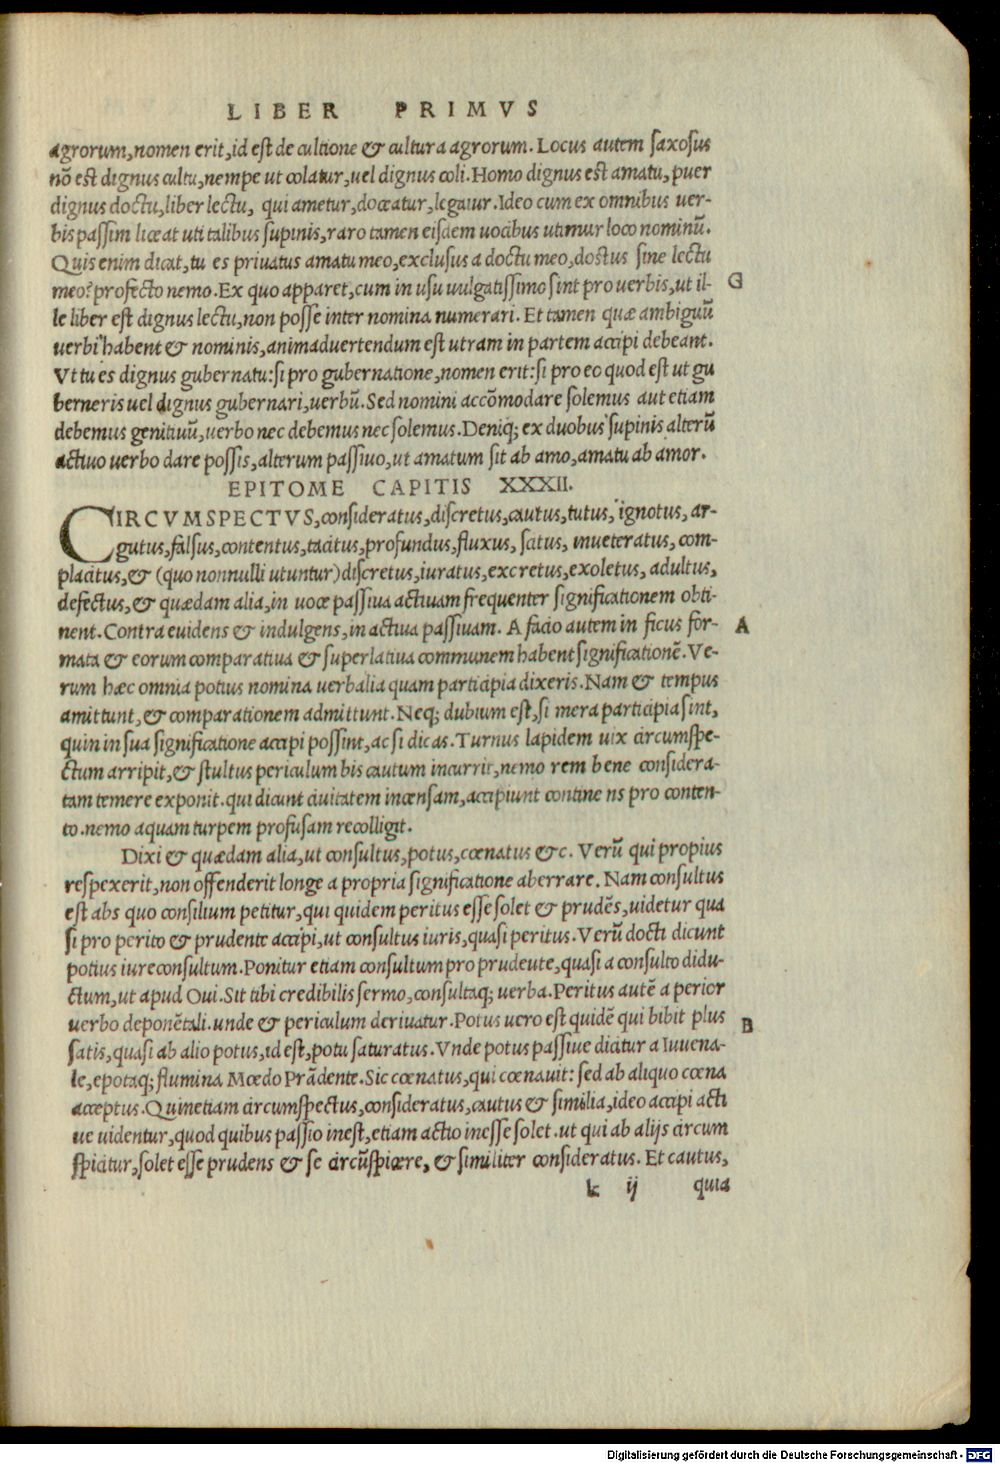 LIBER PRIMVS
agrorum, nomen erit, id est de cultione & cultura agrorum. Locus autem saxosus
nō est dignus cultu, nempe ut colatur, uel dignus coli. Homo dignus est amatu, puer
dignus doctu, liber lectu, qui ametur, doceatur, legatur. Ideo cum ex omnibus uer-
bis passim liceat uti talibus supinis, raro tamen eisdem uocibus utimur loco nominū.
Quis enim dicat, tu es priuatus amatu meo, exclusus a doctu meo, doctus sine lectu
meo? profecto nemo. Ex quo apparet, cum in usu uulgatissimo sint pro uerbis, ut il- G
le liber est dignus lectu, non posse inter nomina numerari. Et tamen quæ ambiguū
uerbi habent & nominis, animaduertendum est utram in partem accipi debeant.
Vt tu es dignus gubernatu: si pro gubernatione, nomen erit: si pro eo quod est ut gu
berneris uel dignus gubernari, uerbū. Sed nomini accōmodare solemus aut etiam
debemus genitiuū, uerbo nec debemus nec solemus. Deniq; ex duobus supinis alterū
actiuo uerbo dare possis, alterum passiuo, ut amatum sit ab amo, amatu ab amor.
EPITOME CAPITIS XXXII.
CIRCVMSPECTVS, consideratus, discretus, cautus, tutus, ignotus, ar-
gutus, falsus, contentus, tacitus, profundus, fluxus, scitus, inueteratus, com-
placitus, & (quo nonnulli utuntur) discretus, iuratus, excretus, exoletus, adultus,
defectus, & quædam alia, in uoce passiua actiuam frequenter significationem obti-
nent. Contra euidens & indulgens, in actiua passiuam. A facio autem in ficus for- A
mata & eorum comparatiua & superlatiua communem habent significationē. Ve-
rum hæc omnia potius nomina uerbalia quam participia dixeris. Nam & tempus
amittunt, & comparationem admittunt. Neq; dubium est, si mera participia sint,
quin in sua significatione accipi possint, ac si dicas. Turnus lapidem uix circumspe-
ctum arripit, & stultus periculum bis cautum incurrit, nemo rem bene considera-
tam temere exponit. qui dicunt ciuitatem incensam, accipiunt continens pro conten-
to. nemo aquam turpem profusam recolligit.
Dixi & quædam alia, ut consultus, potus, cœnatus &c. Verū qui propius
respexerit, non offenderit longe a propria significatione aberrare. Nam consultus
est abs quo consilium petitur, qui quidem peritus esse solet & prudēs, uidetur qua
si pro perito & prudente accipi, ut consultus iuris, quasi peritus. Verū docti dicunt
potius iureconsultum. Ponitur etiam consultum pro prudeute, quasi a consulto didu-
ctum, ut apud Oui. Sit tibi credibilis sermo, consultaq; uerba. Peritus autē a perior
uerbo deponētali. unde & periculum deriuatur. Potus uero est quidē qui bibit plus B
satis, quasi ab alio potus, id est, potu saturatus. Vnde potus passiue dicitur a Iuuena-
le, epotaq; flumina Mœdo Prādente. Sic cœnatus, qui cœnauit: sed ab aliquo cœna
acceptus. Quinetiam circumspectus, consideratus, cautus & similia, ideo accipi acti
ue uidentur, quod quibus passio inest, etiam actio inesse solet. ut qui ab alijs circum
spicitur, solet esse prudens & se circūspicere, & similiter consideratus. Et cautus,
k ij quia
Digitalisierung gefördert durch die Deutsche Forschungsgemeinschaft - DFG